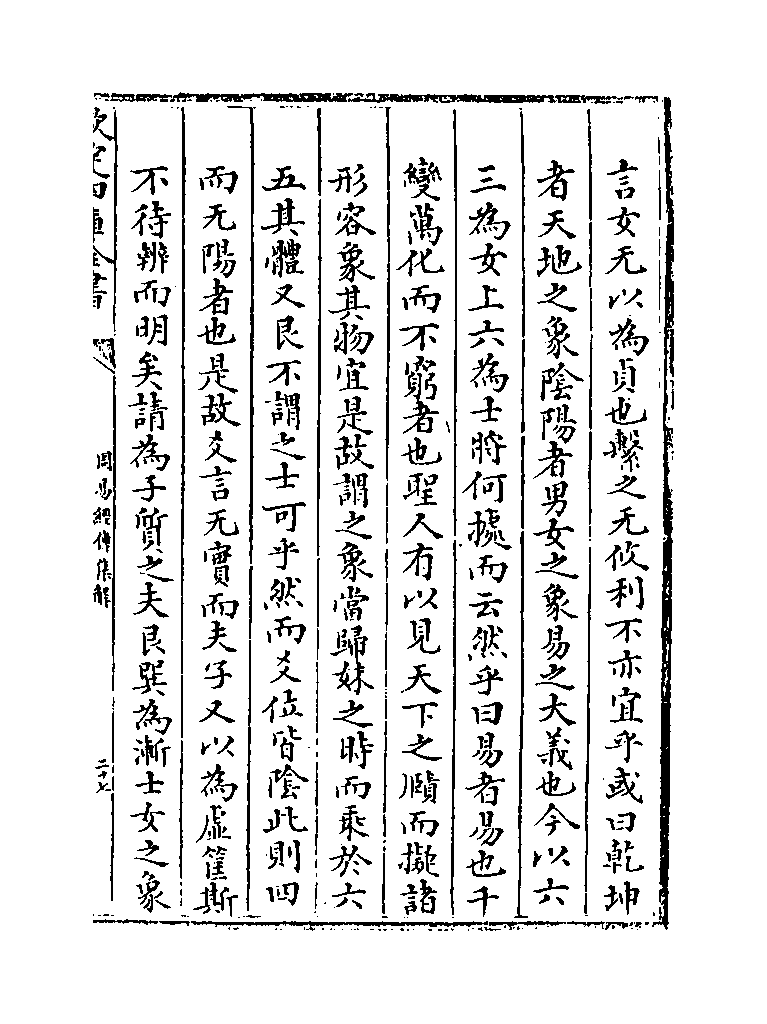 言女无以為貞也繫之无攸利不亦宜乎或曰乾坤
者天地之象陰陽者男女之象易之大義也今以六
三為女上六為士將何據而云然乎曰易者易也千
變萬化而不窮者也聖人有以見天下之賾而擬諸
形容象其物宜是故謂之象當歸妹之時而乘於六
五其體又艮不謂之士可乎然而爻位皆陰此則四
而无陽者也是故爻言无實而夫子又以為虛筐斯
不待辨而明矣請為子質之夫艮巽為漸士女之象
欽定四庫全書
周易經傳集解
二十七